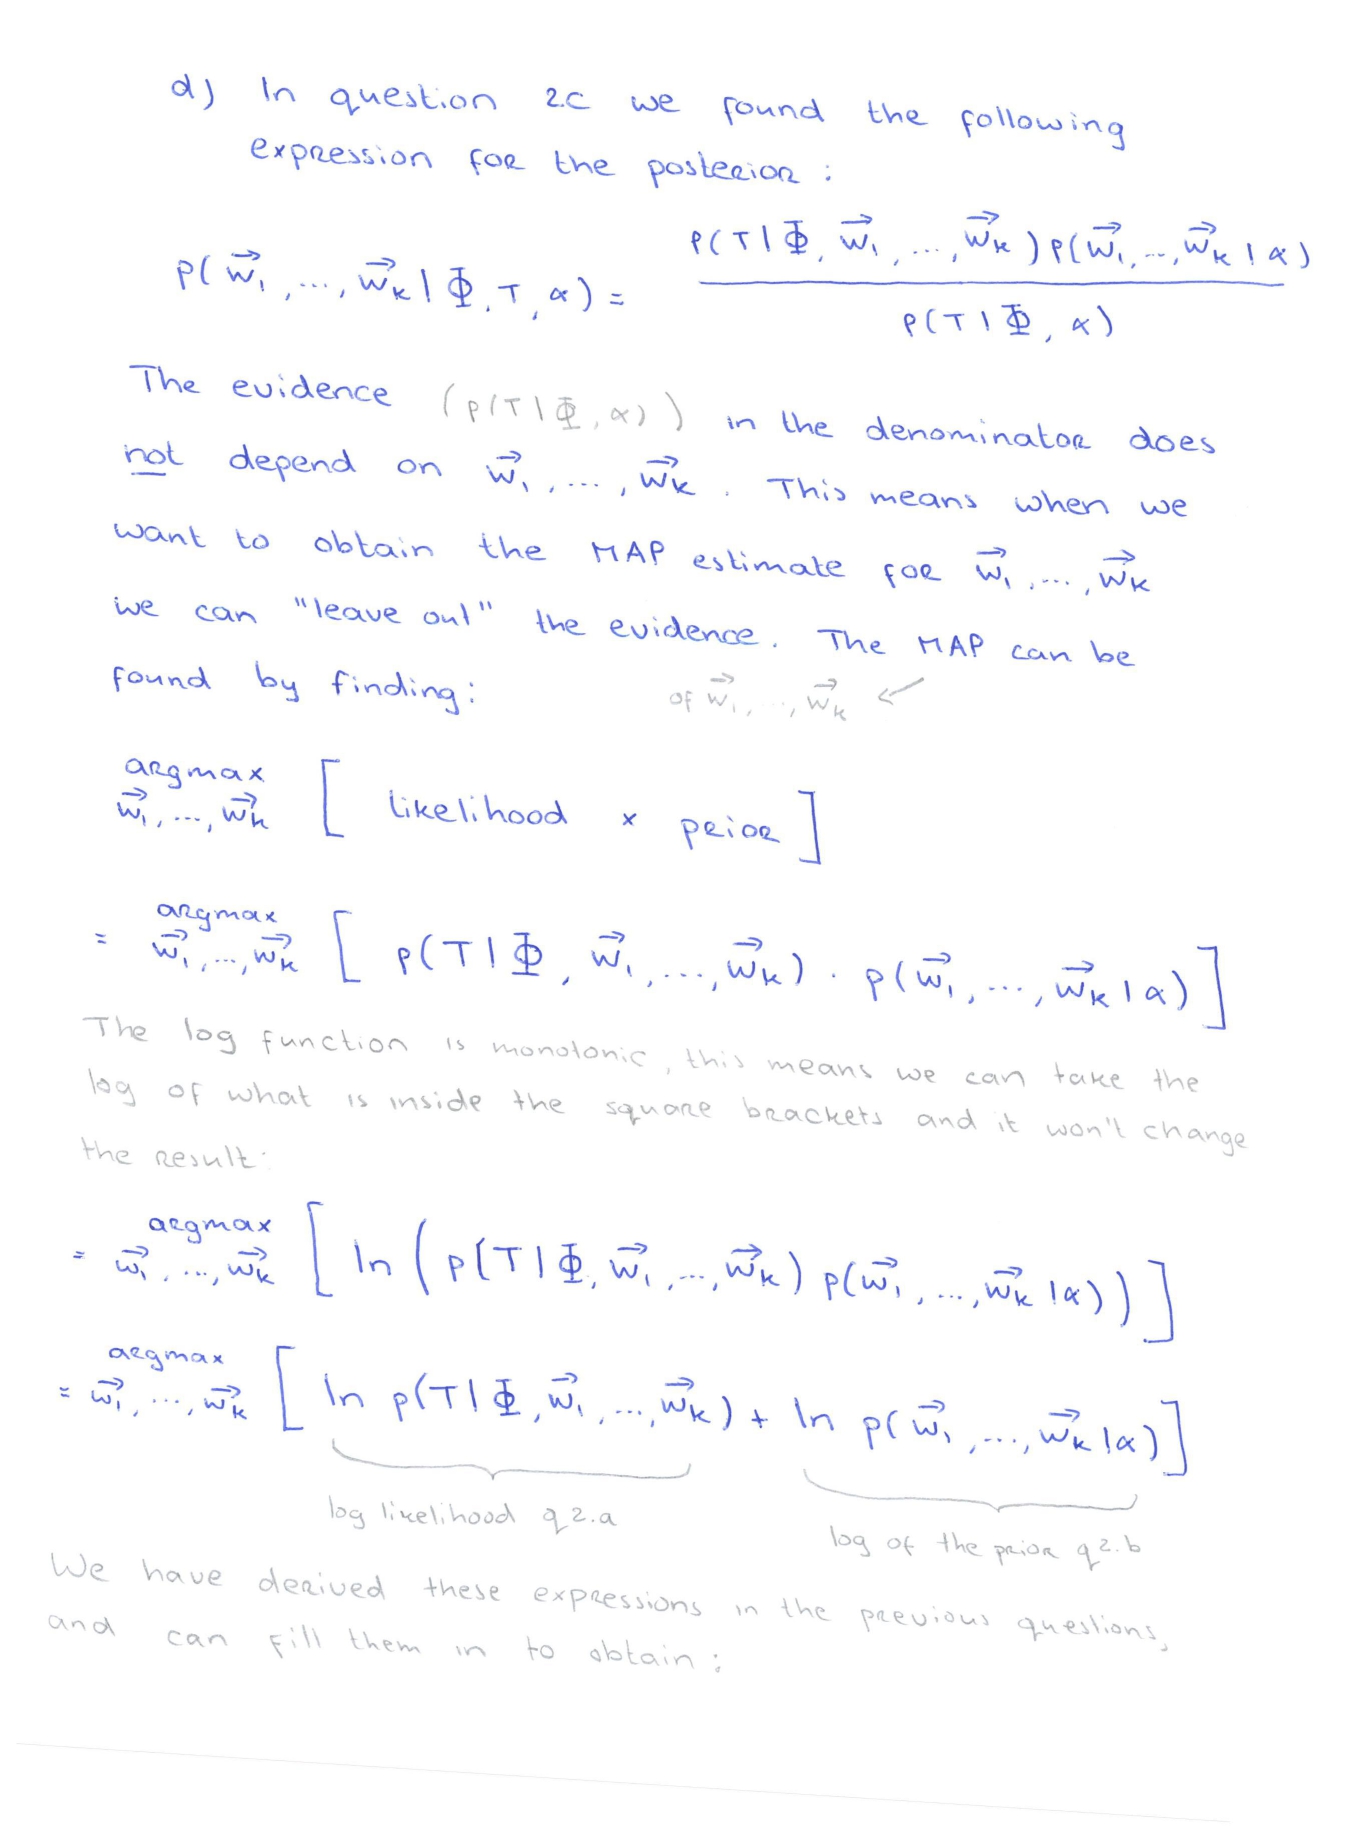 d) In question 2.c we found the following
expression for the posterior :
p( w⃗₁ ,..., w⃗ₖ | Φ, T, α) = p(T | Φ, w⃗₁ ,..., w⃗ₖ ) p(w⃗₁,..., w⃗ₖ | α) / p(T | Φ, α)
The evidence (p(T | Φ, α)) in the denominator does
not depend on w⃗₁ ,..., w⃗ₖ . This means when we
want to obtain the MAP estimate for w⃗₁ ,..., w⃗ₖ
we can "leave out" the evidence. The MAP can be
found by finding : of w⃗₁,..., w⃗ₖ ↙
argmax
w⃗₁,..., w⃗ₖ [ likelihood × prior ]
= argmax
w⃗₁,..., w⃗ₖ [ p(T | Φ, w⃗₁,..., w⃗ₖ) · p(w⃗₁,..., w⃗ₖ | α) ]
The log function is monotonic, this means we can take the
log of what is inside the square brackets and it won't change
the result:
= argmax
w⃗₁,..., w⃗ₖ [ ln ( p(T | Φ, w⃗₁,..., w⃗ₖ) p(w⃗₁,..., w⃗ₖ | α) ) ]
= argmax
w⃗₁,..., w⃗ₖ [ ln p(T | Φ, w⃗₁,..., w⃗ₖ) + ln p(w⃗₁,..., w⃗ₖ | α) ]
log likelihood q2.a
log of the prior q2.b
We have derived these expressions in the previous questions,
and can fill them in to obtain :